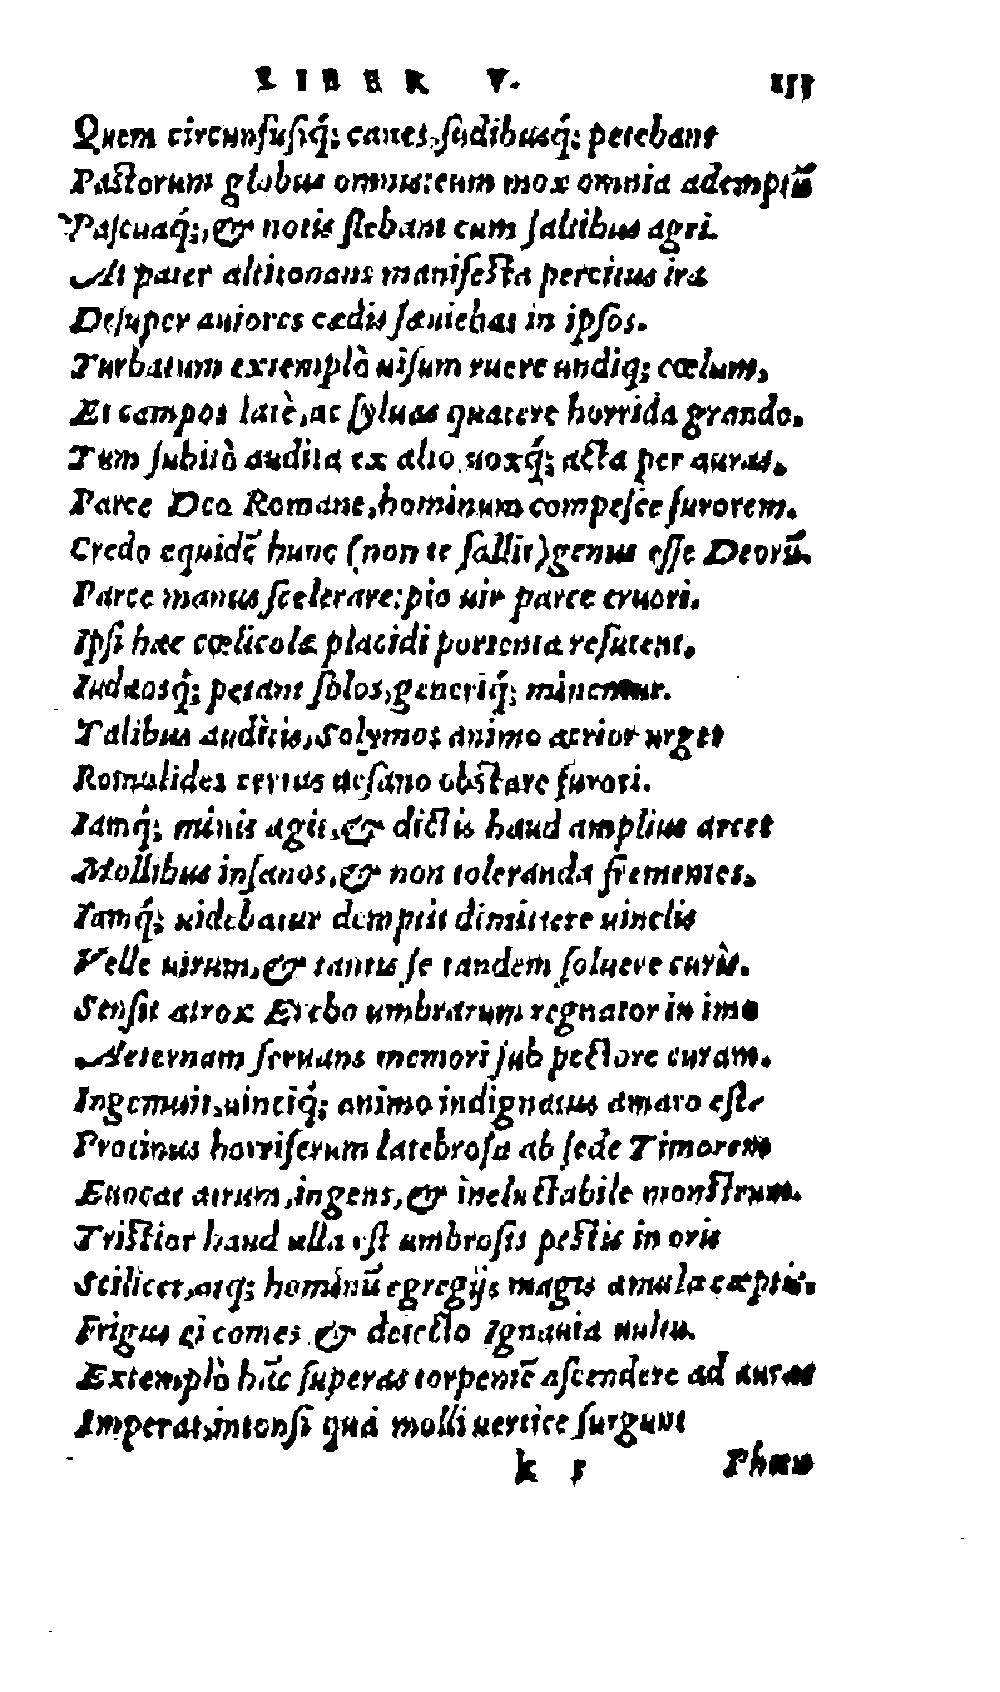 LIBER V. 153
Quem circunfusiq́; canes, sudibusq́; petebant
Pastorum globus omnis: eum mox omnia ademptū
Pascuaq́;, & notis flebant cum saltibus agri.
At pater altitonans manifesta percitus ira
Desuper autores cædis sæuiebat in ipsos.
Turbatum extemplò uisum ruere undiq; cœlum,
Et campos latè, ac syluas quatere horrida grando.
Tum subitò audita ex alto, uoxq́; acta per auras.
Parce Deo Romane, hominum compesce furorem.
Credo equidē hunc (non te fallit) genus esse Deorū.
Parce manus scelerare: pio uir parce cruori.
Ipsi hæc cœlicolæ placidi portenta refutent.
Iudæosq́; petant solos, generiq́; minentur.
Talibus auditis, Solymos animo acrior urget
Romulides certus uesano obstare furori.
Iamq́; minis agit, & dictis haud amplius arcet
Mollibus insanos, & non toleranda frementes.
Iamq́; uidebatur demptis dimittere uinclis
Velle uirum, & tantis se tandem soluere curis.
Sensit atrox Erebo umbrarum regnator in imo
Aeternam seruans memori sub pectore curam.
Ingemuit, uinciq́; animo indignatus amaro est
Protinus horriferum latebrosa ab sede Timorem
Euocat atrum, ingens, & ineluctabile monstrum.
Tristior haud ulla est umbrosis pestis in oris
Scilicet, atq; hominū egregijs magis æmula cæptis.
Frigus ei comes & deiecto Ignauia uultu.
Extemplò hūc superas torpentē ascendere ad auras
Imperat, intonsi quà molli uertice surgunt
k 5 Phœn